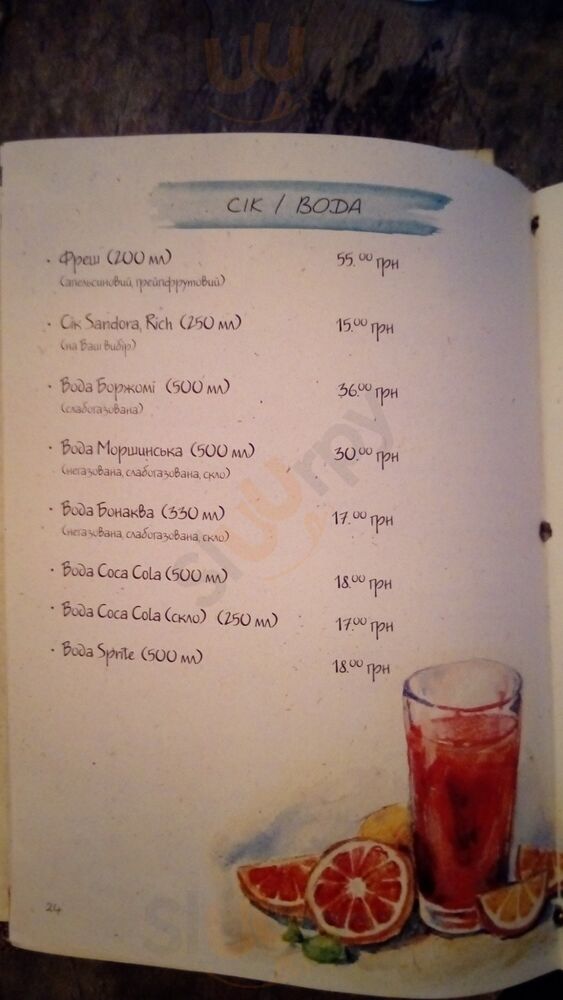 СІК / ВОДА
• Фреш (200 мл) 55.00 грн
(апельсиновий, грейпфрутовий)
• Сік Sandora, Rich (250 мл) 15.00 грн
(на Ваш вибір)
• Вода Боржомі (500 мл) 36.00 грн
(слабогазована)
• Вода Моршинська (500 мл) 30.00 грн
(негазована, слабогазована, скло)
• Вода Бонаква (330 мл) 17.00 грн
(негазована, слабогазована, скло)
• Вода Coca Cola (500 мл) 18.00 грн
• Вода Coca Cola (скло) (250 мл) 17.00 грн
• Вода Sprite (500 мл) 18.00 грн
24
sluurpy